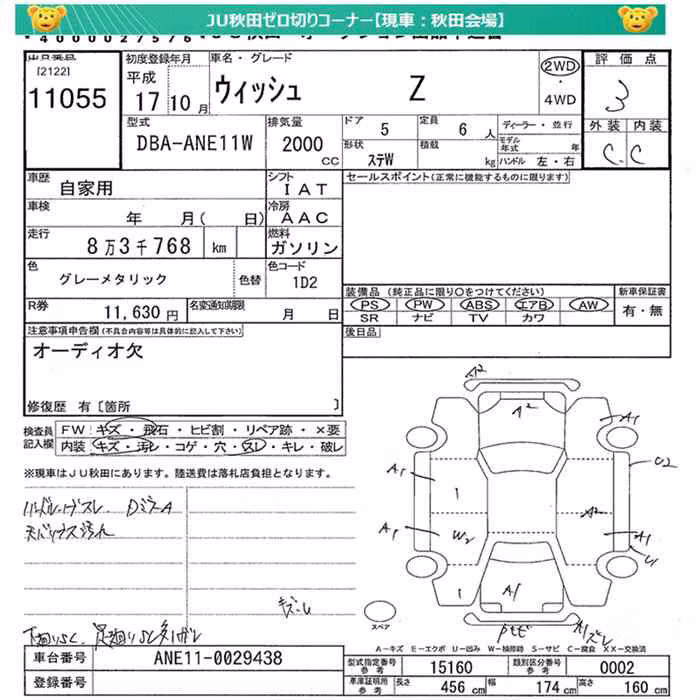 JU秋田ゼロ切りコーナー【現車：秋田会場】
出品番号
[2122]
11055
初度登録年月
平成
17 10 月
車名・グレード
ウィッシュ Z
2WD
・
4WD
評価点
3
外装 内装
C C
型式
DBA-ANE11W
排気量
2000
cc
ドア 5
定員 6 人
ディーラー・並行
形状 ステW
積載 kg
モデル年式 年
ハンドル 左・右
車歴 自家用
シフト IAT
セールスポイント(正常に機能するものに限ります)
車検 年 月( 日)
冷房 AAC
走行 8万3千768 km
燃料 ガソリン
色 グレーメタリック 色替
色コード 1D2
R券 11,630 円
名変通知期限 月 日
装備品 (純正品に限り○をつけてください)
新車保証書
PS PW ABS エアB AW
有・無
SR ナビ TV カワ
注意事項申告欄(不具合内容等は具体的に記入して下さい)
後日品
オーディオ欠
修復歴 有〔箇所 〕
検査員
記入欄
FW キズ・飛石・ヒビ割・リペア跡・×要
内装 キズ・汚レ・コゲ・穴・スレ・キレ・破レ
※現車はJU秋田にあります。陸送費は落札店負担となります。
ハンドル、シフトスレ、DミラーA
天バリ、シフス汚れ
キズ・ム
下廻りSC、足廻りSC
A2
A2
A1
A1
U2
1
A2
A1
W2
A1
U1
1
A1
スペア
A-キズ E-エクボ U-凹み W-補修跡 S-サビ C-腐食 XX-交換済
車台番号 ANE11-0029438
型式指定番号 15160
類別区分番号 0002
登録番号
車庫証明用参考 長さ 456 cm 幅 174 cm 高さ 160 cm